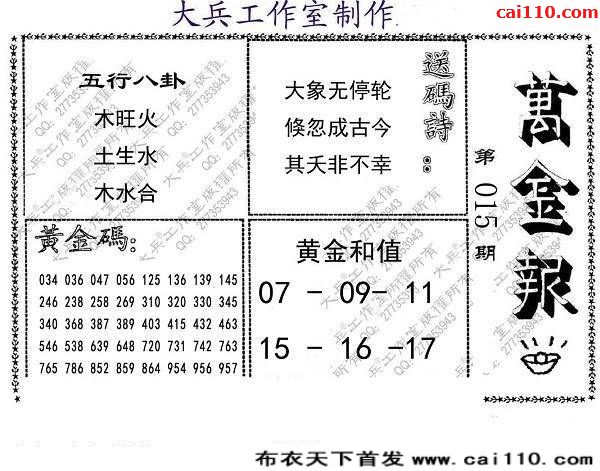 大兵工作室制作
cai110.com
五行八卦
木旺火
土生水
木水合
大象无停轮
倏忽成古今
其夭非不幸
送碼詩:
萬金報
第015期
黃金碼:
034 036 047 056 125 136 139 145
246 238 258 269 310 320 330 345
340 368 387 389 403 415 432 463
546 538 639 648 720 731 742 763
765 786 852 859 864 954 956 957
黄金和值
07 - 09- 11
15 - 16 -17
大兵®工作室版权所有
QQ: 277353943
布衣天下首发 www.cai110.com